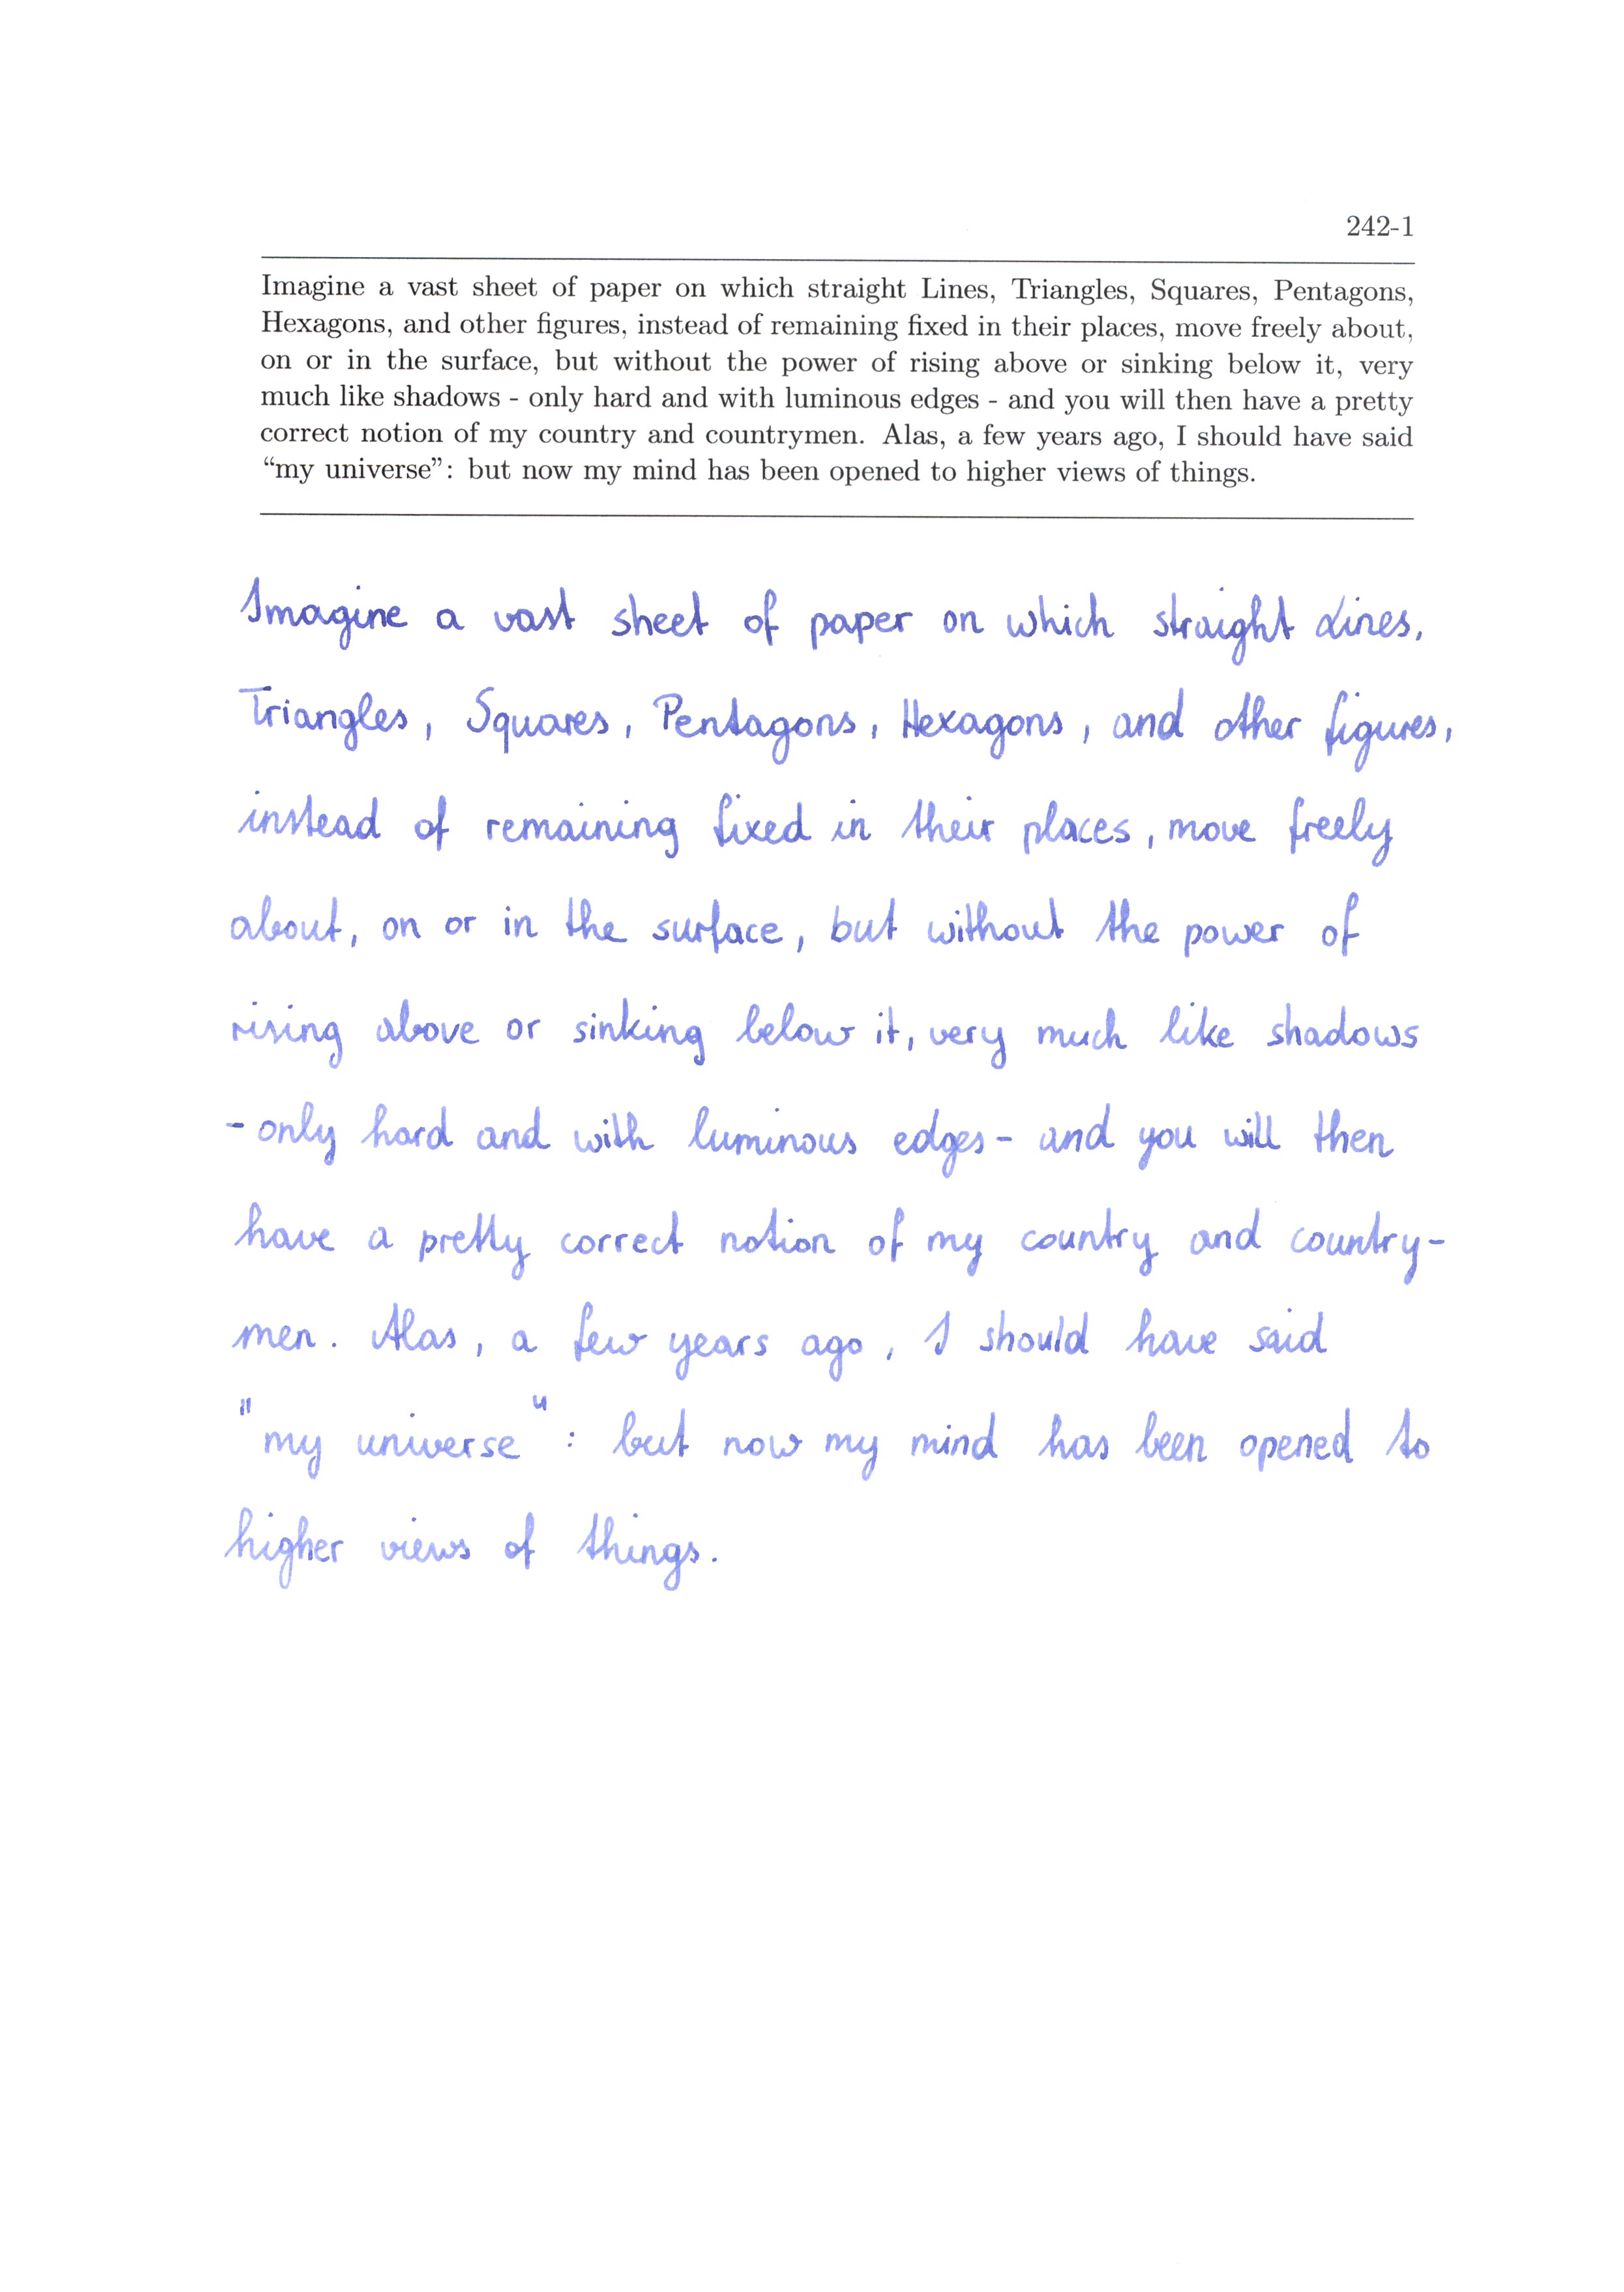 242-1
Imagine a vast sheet of paper on which straight Lines, Triangles, Squares, Pentagons,
Hexagons, and other figures, instead of remaining fixed in their places, move freely about,
on or in the surface, but without the power of rising above or sinking below it, very
much like shadows - only hard and with luminous edges - and you will then have a pretty
correct notion of my country and countrymen. Alas, a few years ago, I should have said
“my universe”: but now my mind has been opened to higher views of things.
Imagine a vast sheet of paper on which straight Lines,
Triangles, Squares, Pentagons, Hexagons, and other figures,
instead of remaining fixed in their places, move freely
about, on or in the surface, but without the power of
rising above or sinking below it, very much like shadows
- only hard and with luminous edges - and you will then
have a pretty correct notion of my country and country-
men. Alas, a few years ago, I should have said
"my universe": but now my mind has been opened to
higher views of things.